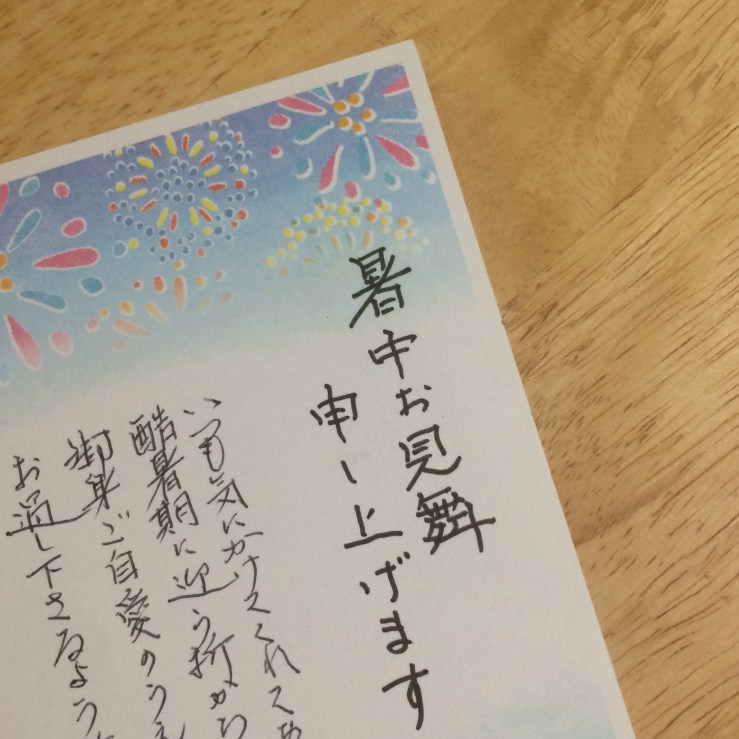 暑中お見舞
申し上げます
いつも気にかけてくれてあ
酷暑期に迎う折から
御身ご自愛のうえ
お過し下さるよう